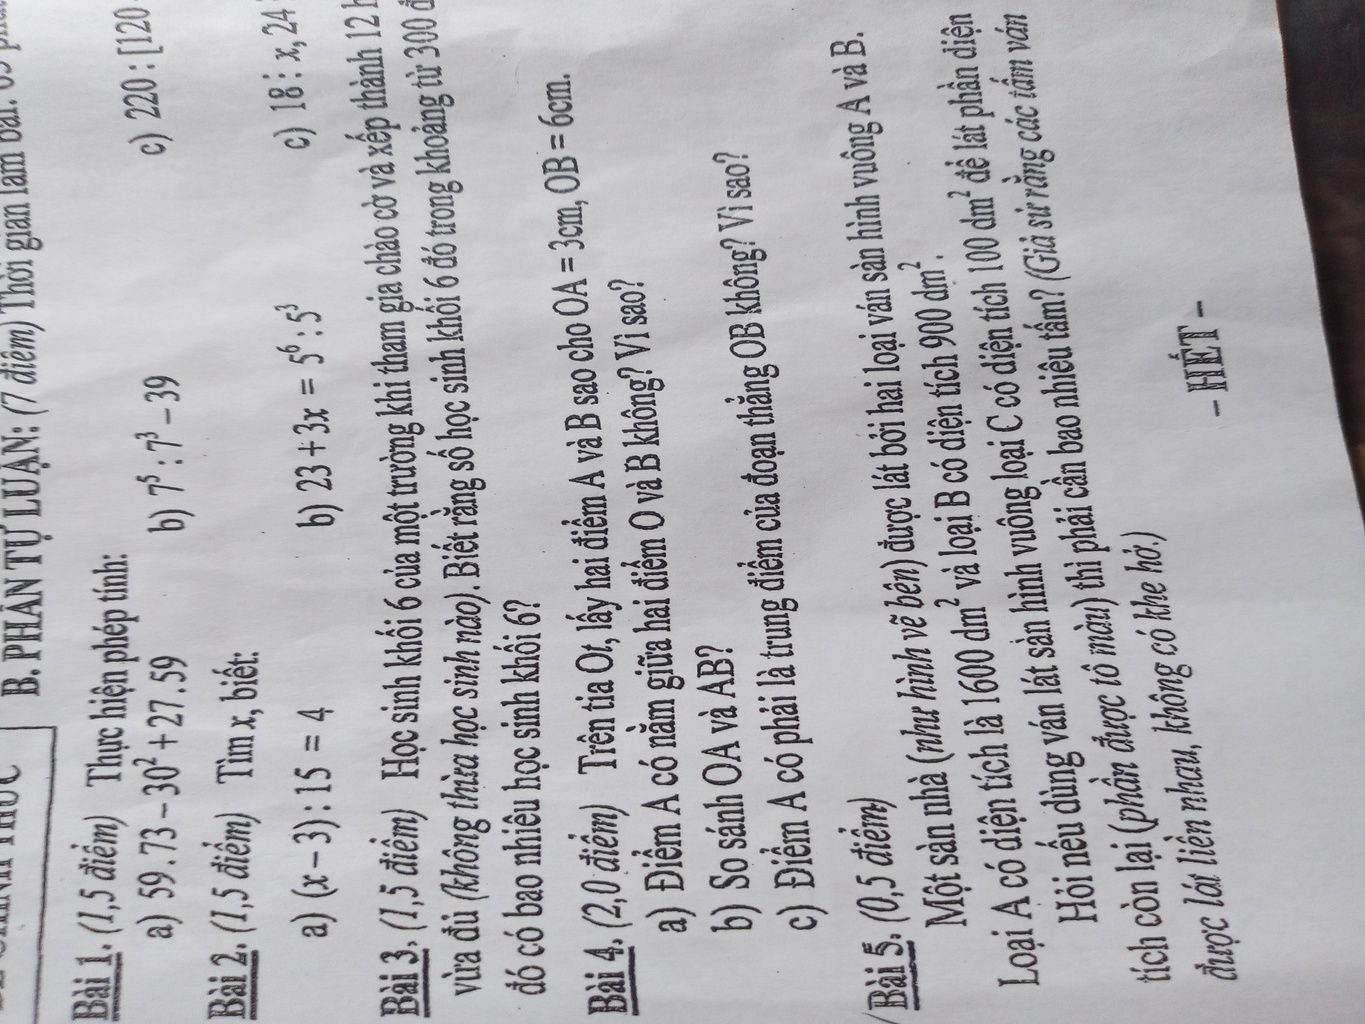 B. PHẦN TỰ LUẬN: (7 điểm) Thời gian làm bài:
Bài 1. (1,5 điểm) Thực hiện phép tính:
a) 59.73 – 30² + 27.59 b) 7⁵ : 7³ – 39 c) 220 : [120
Bài 2. (1,5 điểm) Tìm x, biết:
a) (x – 3) : 15 = 4 b) 23 + 3x = 5⁶ : 5³ c) 18 ⋮ x, 24
Bài 3. (1,5 điểm) Học sinh khối 6 của một trường khi tham gia chào cờ và xếp thành 12 h
vừa đủ (không thừa học sinh nào). Biết rằng số học sinh khối 6 đó trong khoảng từ 300 đ
đó có bao nhiêu học sinh khối 6?
Bài 4. (2,0 điểm) Trên tia Ot, lấy hai điểm A và B sao cho OA = 3cm, OB = 6cm.
a) Điểm A có nằm giữa hai điểm O và B không? Vì sao?
b) So sánh OA và AB?
c) Điểm A có phải là trung điểm của đoạn thẳng OB không? Vì sao?
Bài 5. (0,5 điểm)
Một sàn nhà (như hình vẽ bên) được lát bởi hai loại ván sàn hình vuông A và B.
Loại A có diện tích là 1600 dm² và loại B có diện tích 900 dm².
Hỏi nếu dùng ván lát sàn hình vuông loại C có diện tích 100 dm² để lát phần diện
tích còn lại (phần được tô màu) thì phải cần bao nhiêu tấm? (Giả sử rằng các tấm ván
được lát liền nhau, không có khe hở.)
– HẾT –